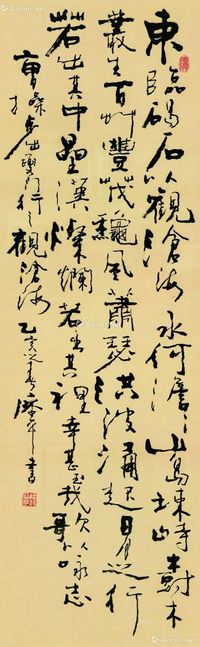 東臨碣石以觀滄海水何澹々山島竦峙樹木
叢生百艸豐茂龝風蕭瑟洪波涌起日月之行
若出其中星漢燦爛若出其裡幸甚至哉歌以詠志
曹操步出夏門行觀滄海乙亥書